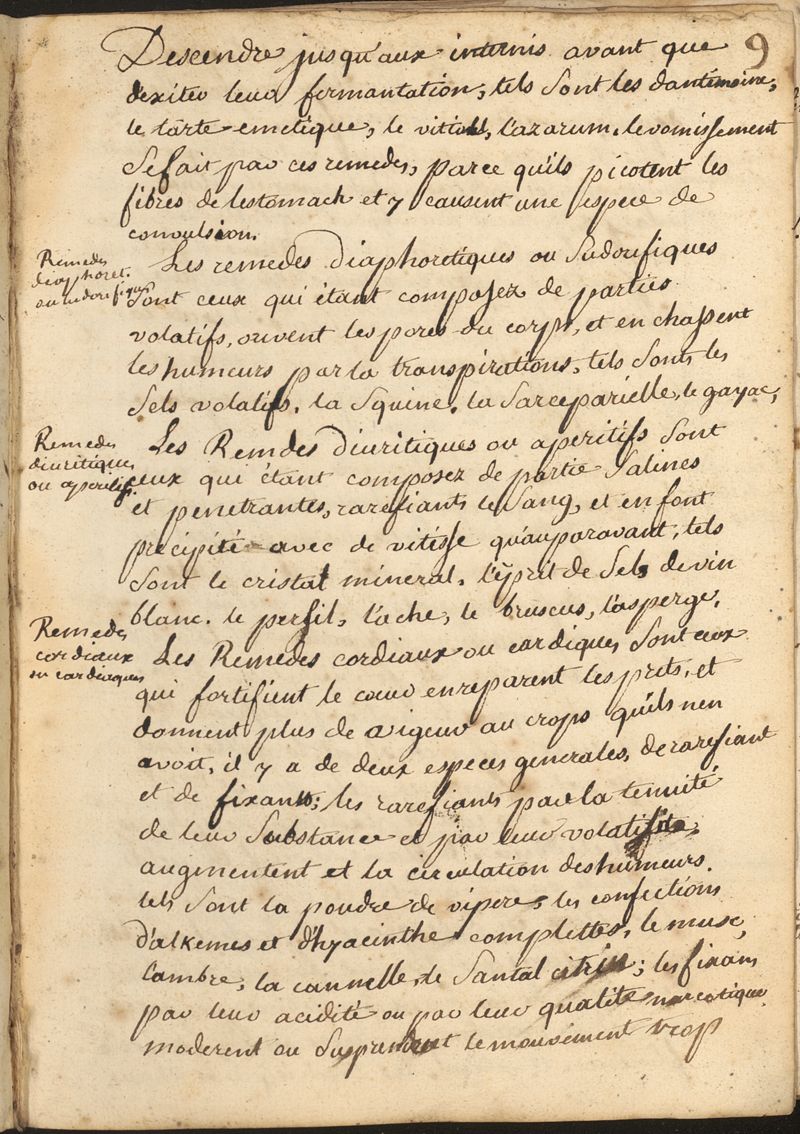 9
Descendre jusqu'aux internis avant que
dexiter leur fermantation, tels sont les dantimoine,
le tarte emetique, le vitriol, l'azarum. le vomissement
se fait par ces remedes, parce qu'ils picotent les
fibres de lestomach et y causent une espece de
convulsion.
Remedes
diaphoret.
ou sudorifiques
Les remedes diaphoretiques ou sudorifiques
sont ceux qui étant composez de parties
volatifs, ouvent les pores du corps, et en chassent
les humeurs par la transpirations, tels sont les
sels volatifs. la squine. la sarceparielle, le gayac,
Remedes
diuritiques
ou aperitifs.
Les Remdes diuritiques ou aperitifs sont
ceux qui étant composez de partie salines
et penetrantes, rarefiants le sang, et en font
precipité avec de vitesse qu'auparavant, tels
sont le cristal mineral, l'esprit de sel, de vin
blanc. le persil, l'ache, le bruscus, l'asperge.
Remedes
cordiaux
ou cardiaques
Les Remedes cordiaux ou cardiques sont ceux
qui fortifient le cœur en reparent les prits, et
donnent plus de vigeur au crops qu'ils nen
avoit, il y a de deux especes generales, de rarefiant
et de fixants; les rarefiants par la tenuité
de leur substance et par leur
augmentent et la circulation des humeurs.
tels sont la poudre de vipere, les confections
d'alkemes et d'hyacinthe complettes, le musc,
l'ambre, la cannelle, de santal citrin; les fixans
par leur acidité ou par leur qualité narcotique
moderent ou le mouvement trop